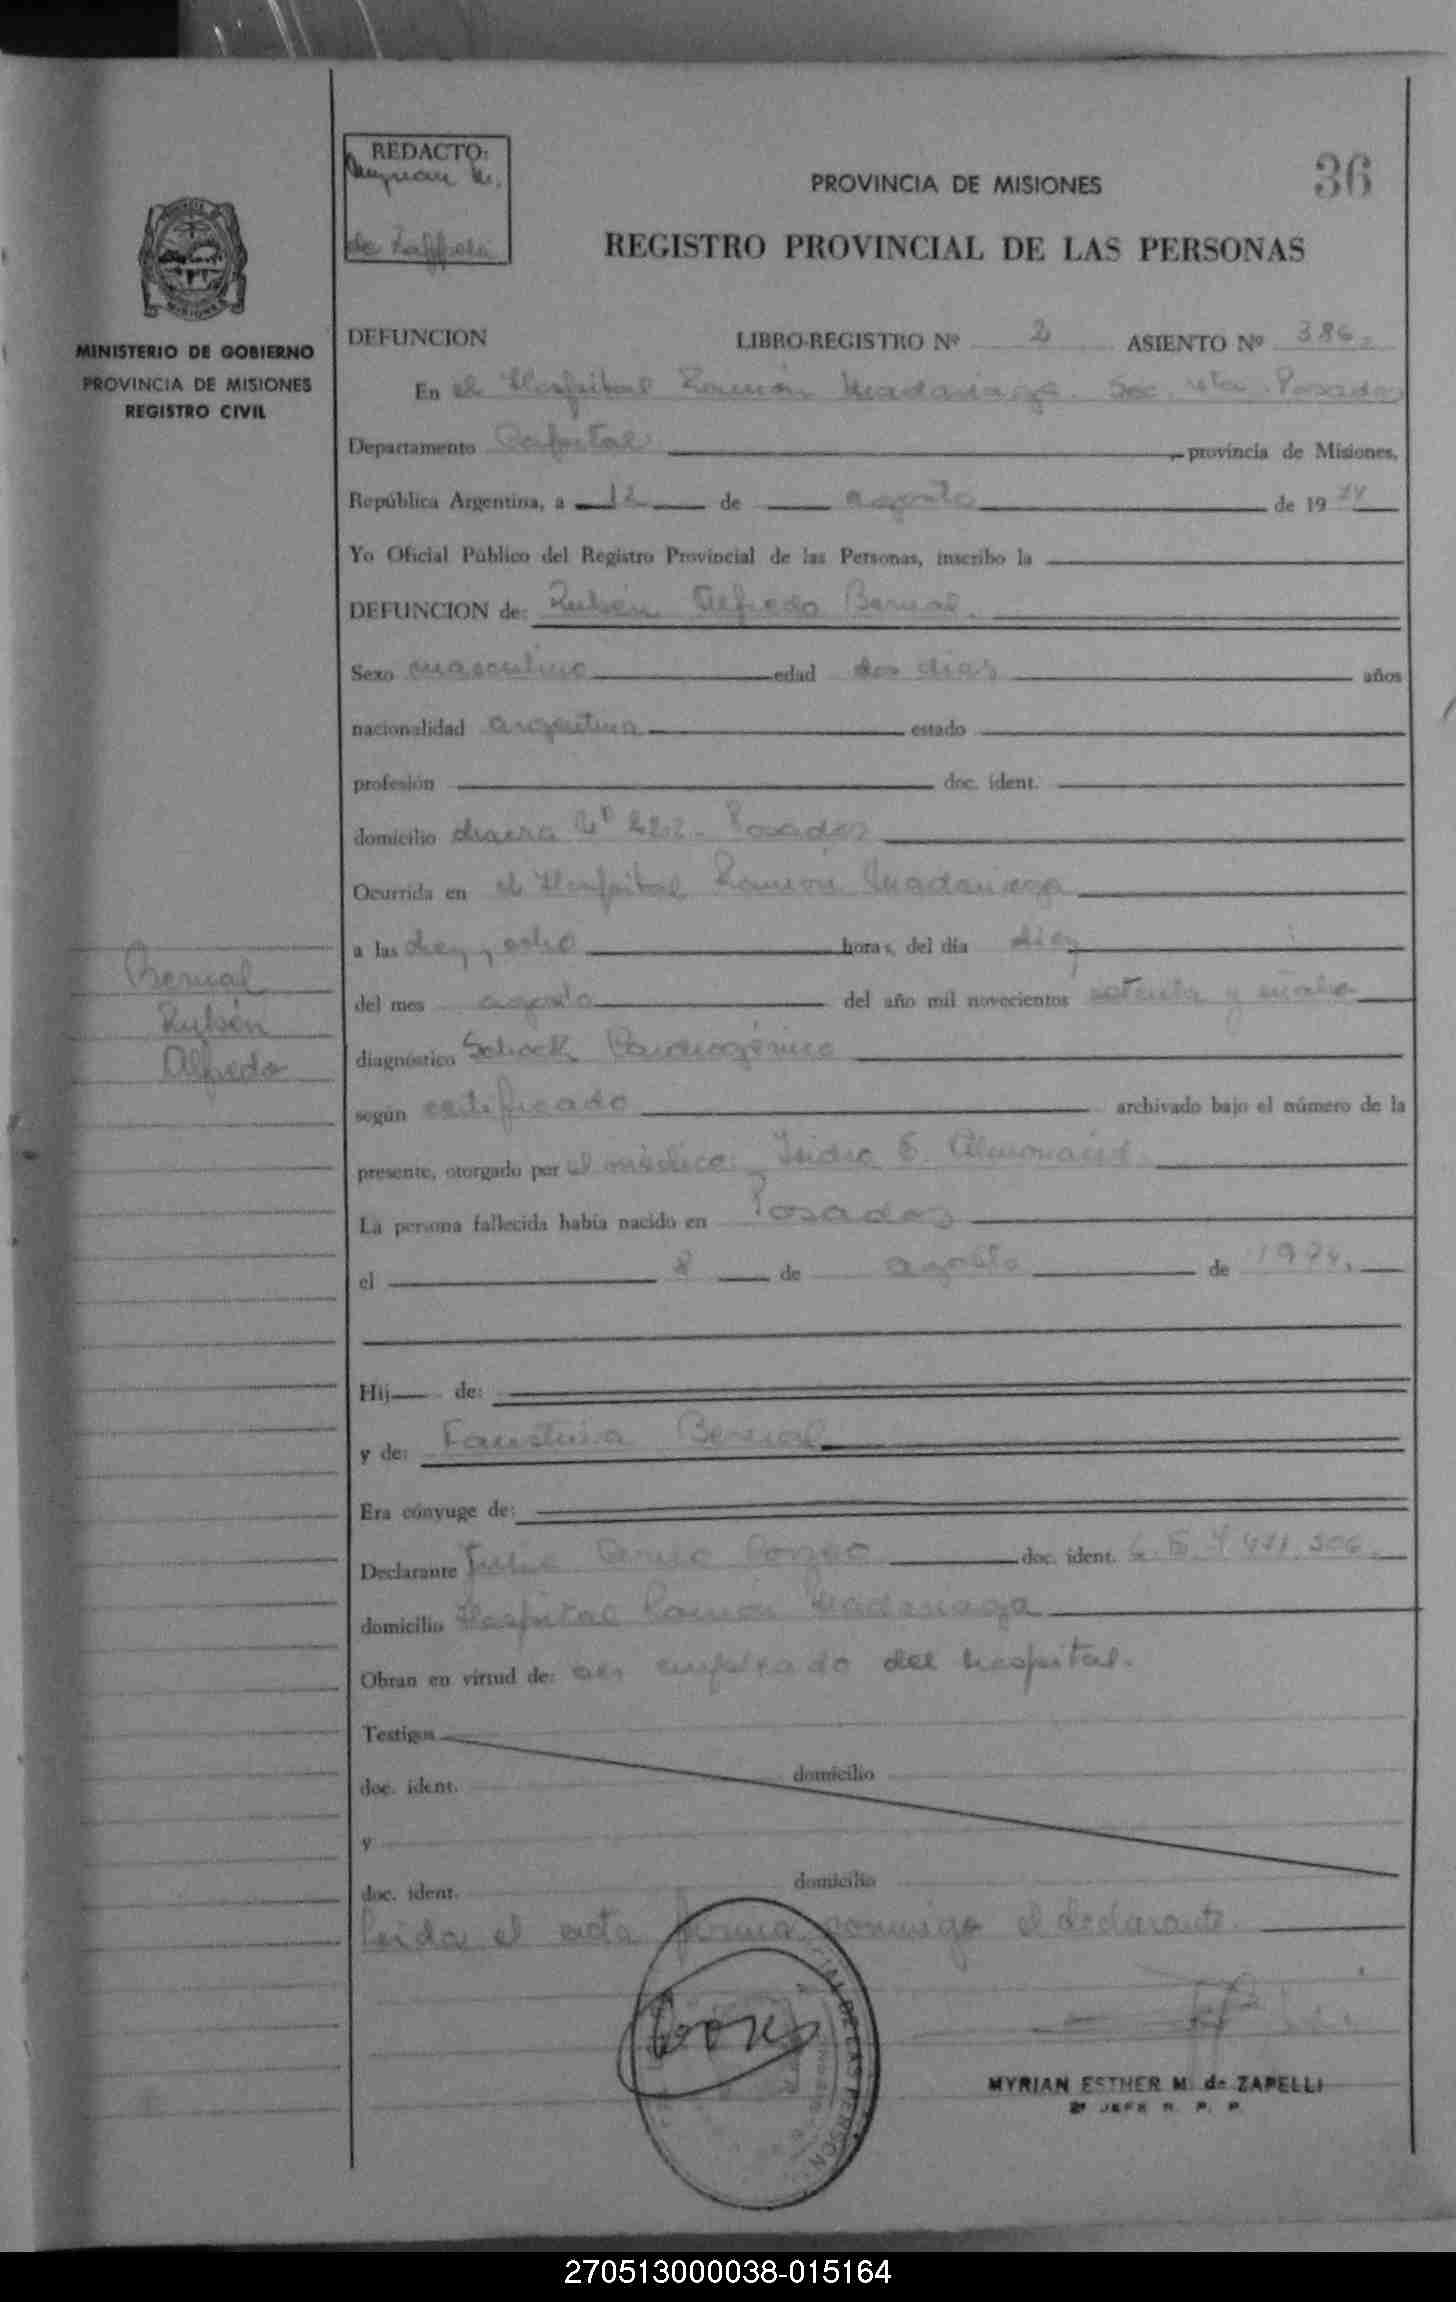 36
REDACTO:
Myrian M.
de Zappelli
PROVINCIA DE MISIONES
REGISTRO PROVINCIAL DE LAS PERSONAS
MINISTERIO DE GOBIERNO
PROVINCIA DE MISIONES
REGISTRO CIVIL
DEFUNCION LIBRO-REGISTRO Nº 2 ASIENTO Nº 386
En el Hospital Ramón Madariaga. Sec. Posadas
Departamento Capital provincia de Misiones,
República Argentina, a 12 de agosto de 1974
Yo Oficial Público del Registro Provincial de las Personas, inscribo la
DEFUNCION de: Rubén Alfredo Bernal.
Sexo masculino edad dos dias años
nacionalidad argentina estado
profesión doc. ident.
domicilio chacra Nº Posadas
Ocurrida en el Hospital Ramón Madariaga
a las diez y ocho horas, del día diez
del mes agosto del año mil novecientos setenta y cuatro
diagnóstico Schock Cardiogénico
según certificado archivado bajo el número de la
presente, otorgado por el médico: Isidro E.
La persona fallecida había nacido en Posadas
el 8 de agosto de 1974.
Hij de:
y de: Faustina Bernal
Era cónyuge de:
Declarante Julio doc. ident.
domicilio Hospital Ramón Madariaga
Obran en virtud de: ser empleado del hospital.
Testigos
doc. ident. domicilio
y
doc. ident. domicilio
Leida el acta firma conmigo el declarante.
Bernal
Rubén
Alfredo
MYRIAN ESTHER M. de ZAPELLI
2º JEFE R. P. P.
270513000038-015164